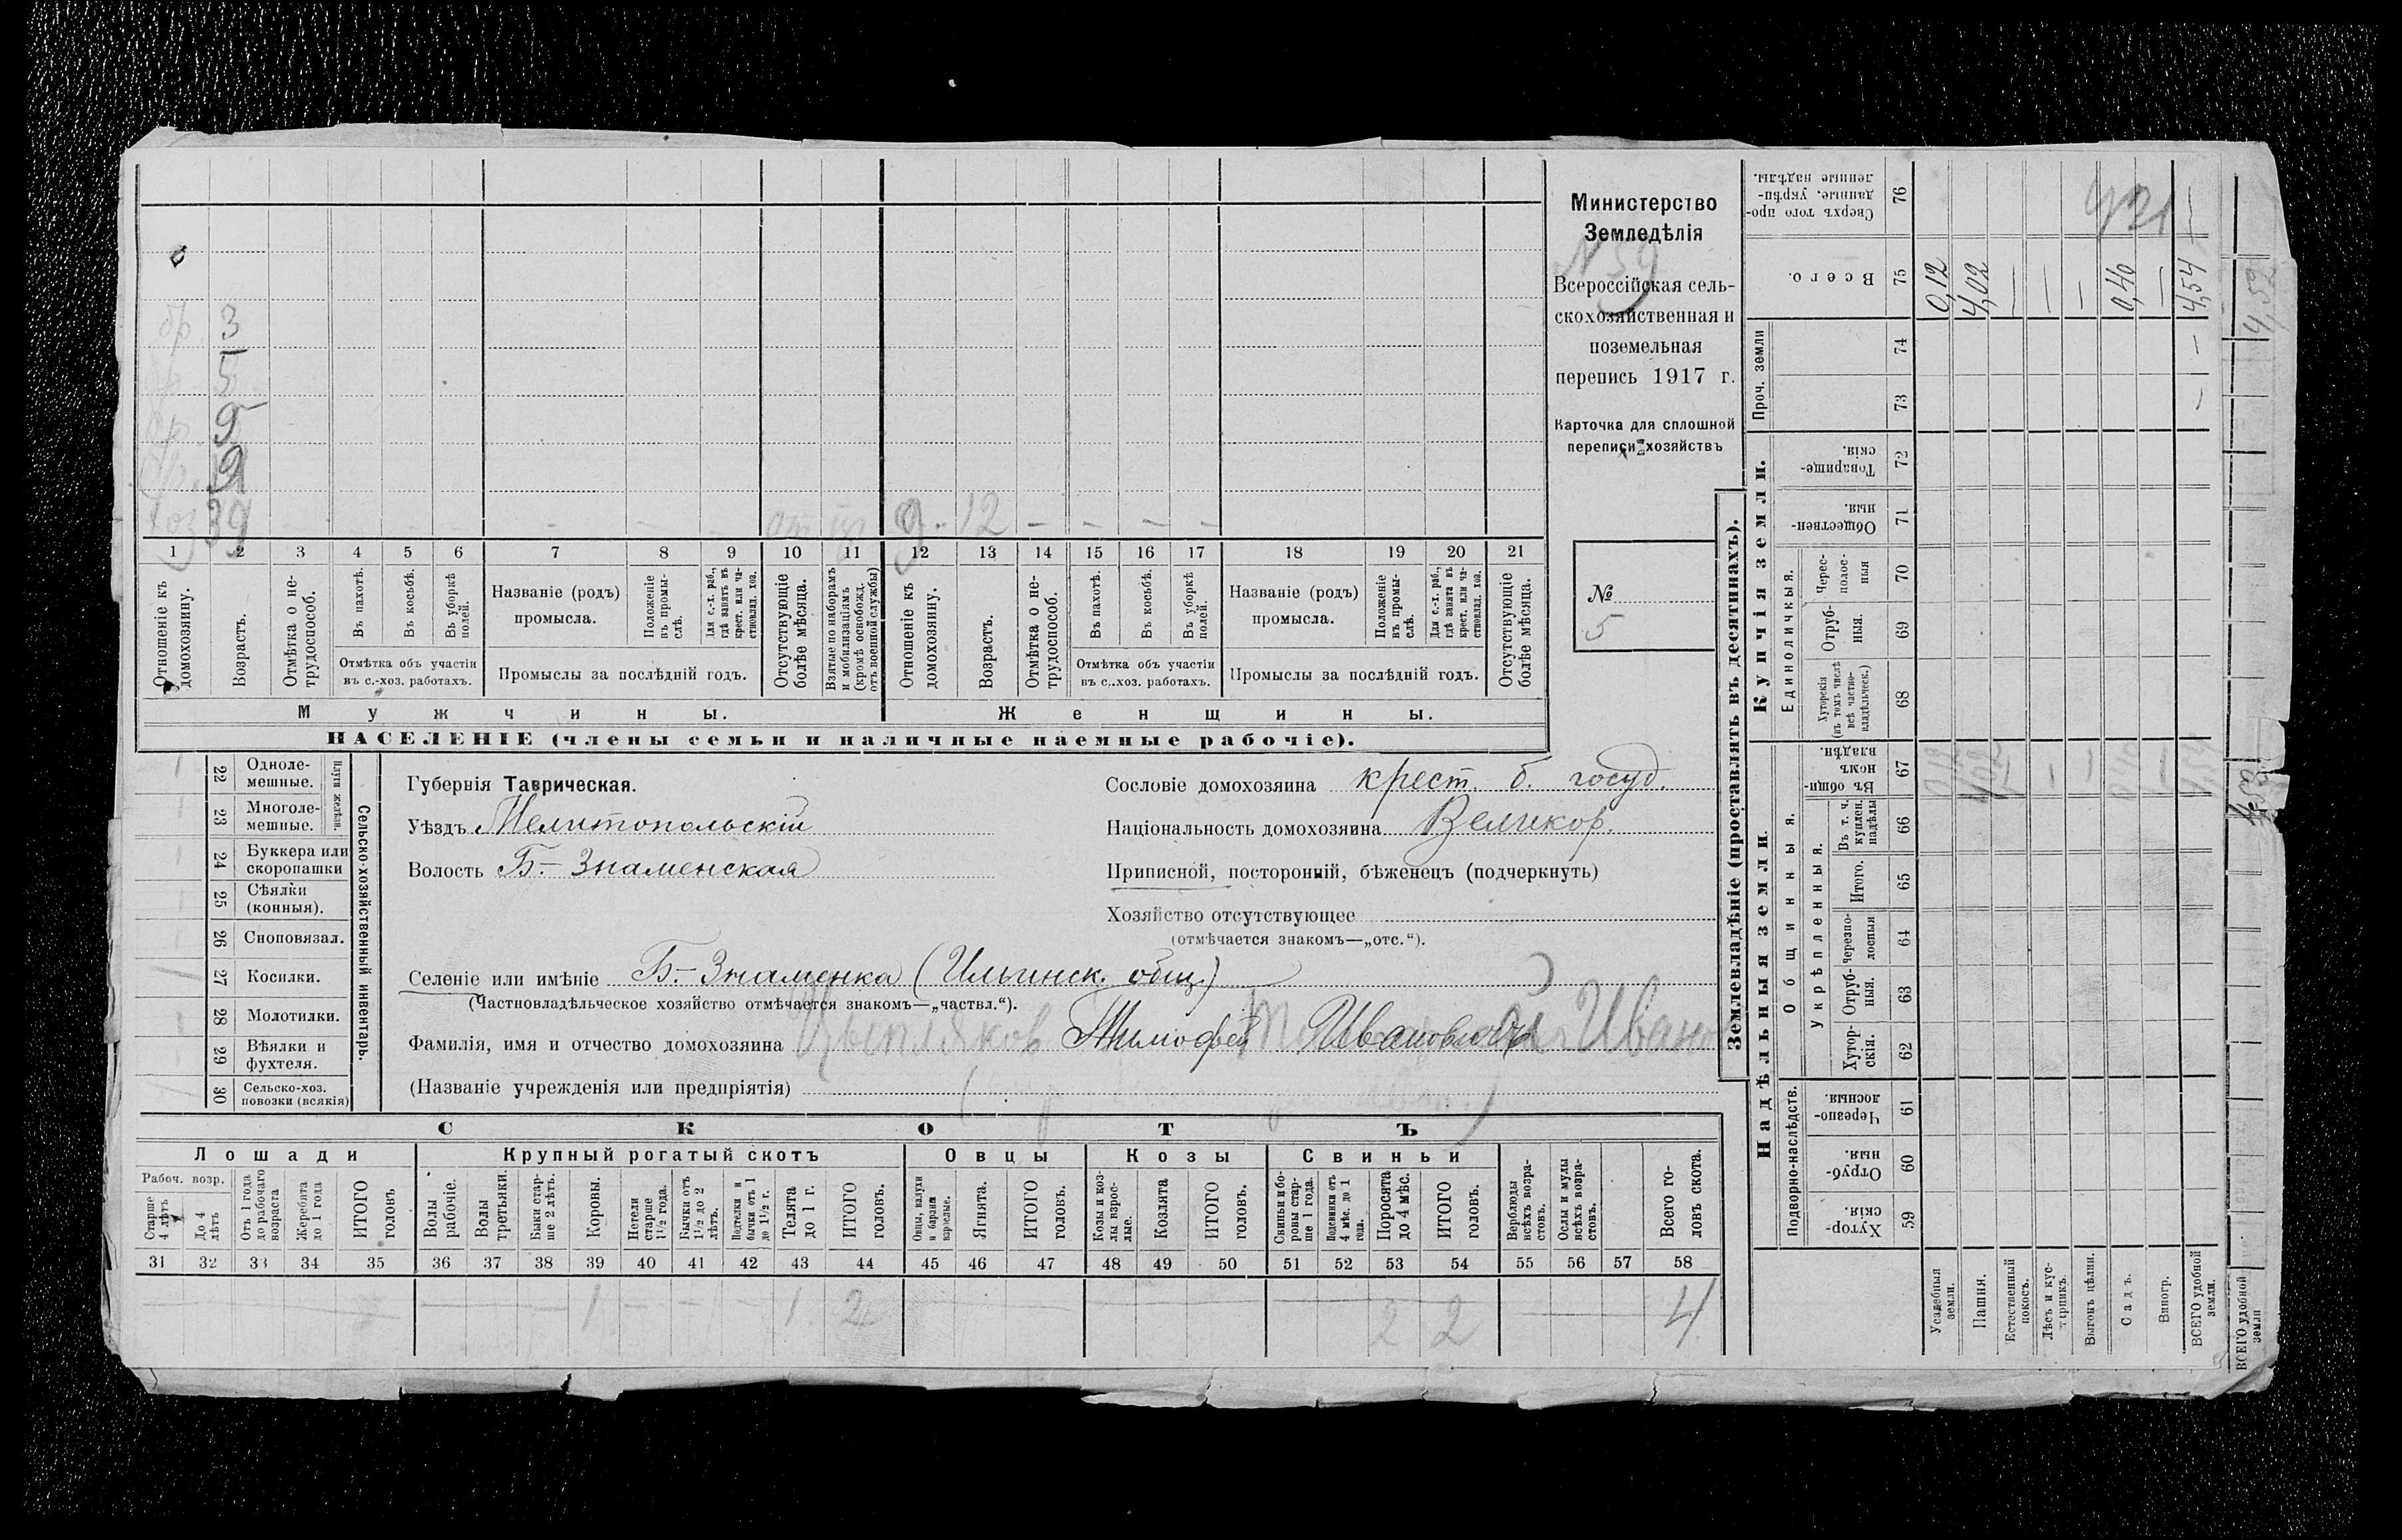 Министерство
Земледѣлія
№ 59
Всероссійская сель-
скохозяйственная и
поземельная
перепись 1917 г.
Карточка для сплошной
переписи хозяйствъ
№
5
3
5
9
9
хоз 39 9. 12
1 2 3 4 5 6 7 8 9 10 11 12 13 14 15 16 17 18 19 20 21
Отношеніе къ домохозяину.
Возрастъ.
Отмѣтка о не-трудоспособ.
Въ пахотѣ.
Въ косьбѣ.
Въ уборкѣ полей.
Отмѣтка объ участіи
въ с.-хоз. работахъ.
Названіе (родъ)
промысла.
Положеніе въ промы-слѣ.
Для с.-х. раб., гдѣ занятъ въ крест. или ча-стновлад. хоз.
Промыслы за послѣдній годъ.
Отсутствующіе болѣе мѣсяца.
Взятые по наборамъ и мобилизаціямъ (кромѣ освобожд. отъ военной службы)
Отношеніе къ домохозяину.
Возрастъ.
Отмѣтка о не-трудоспособ.
Въ пахотѣ.
Въ косьбѣ.
Въ уборкѣ полей.
Отмѣтка объ участіи
въ с.-хоз. работахъ.
Названіе (родъ)
промысла.
Положеніе въ промы-слѣ.
Для с.-х. раб., гдѣ занята въ крест. или ча-стновлад. хоз.
Промыслы за послѣдній годъ.
Отсутствующіе болѣе мѣсяца.
Мужчины. Женщины.
НАСЕЛЕНІЕ (члены семьи и наличные наемные рабочіе).
Сельско-хозяйственный инвентарь.
Плуги желѣзн.
22 Одноле-мешные.
23 Многоле-мешные.
24 Буккера или скоропашки
25 Сѣялки (конныя).
26 Сноповязал.
27 Косилки.
28 Молотилки.
29 Вѣялки и фухтеля.
30 Сельско-хоз. повозки (всякія)
Губернія Таврическая.
Уѣздъ Мелитопольскій
Волость Б.-Знаменская
Сословіе домохозяина крест. б. госуд.
Національность домохозяина Великор.
Приписной, посторонній, бѣженецъ (подчеркнуть)
Хозяйство отсутствующее
(отмѣчается знакомъ—„отс.“).
Селеніе или имѣніе Б.-Знаменка (Ильинск. общ.)
(Частновладѣльческое хозяйство отмѣчается знакомъ—„частвл.“).
Фамилія, имя и отчество домохозяина Цыпляков Тимофей Ивановичъ
(Названіе учрежденія или предпріятія)
СКОТЪ
Лошади Крупный рогатый скотъ Овцы Козы Свиньи
Рабоч. возр.
Старше 4 лѣтъ
До 4 лѣтъ
Отъ 1 года до рабочаго возраста
Жеребята до 1 года
ИТОГО головъ
Волы рабочіе.
Волы третьяки.
Быки стар-ше 2 лѣтъ.
Коровы.
Нетели старше 1½ года.
Бычки отъ 1½ до 2 лѣтъ.
Подтелки и бычки отъ 1 до 1½ г.
Телята до 1 г.
ИТОГО головъ.
Овцы, валухи и бараны взрослые.
Ягнята.
ИТОГО головъ.
Козы и коз-лы взрос-лые.
Козлята
ИТОГО головъ.
Свиньи и бо-ровы стар-ше 1 года.
Подсвинки отъ 4 мѣс. до 1 года.
Поросята до 4 мѣс.
ИТОГО головъ.
Верблюды всѣхъ возра-стовъ.
Ослы и мулы всѣхъ возра-стовъ.
Всего го-ловъ скота.
31 32 33 34 35 36 37 38 39 40 41 42 43 44 45 46 47 48 49 50 51 52 53 54 55 56 57 58
1 1 2 2 2 4
Землевладѣніе (проставлять въ десятинахъ).
Надѣльныя земли. Купчія земли. Проч. земли
Подворно-наслѣдств.
Общинныя.
Укрѣпленныя.
Единоличныя.
Хутор-скія. 59
Отруб-ныя. 60
Черезпо-лосныя. 61
Хутор-скія. 62
Отруб-ныя. 63
Черезпо-лосныя 64
Итого. 65
Въ т. ч. куплен. надѣлы 66
Въ общин-номъ владѣн. 67
Хуторскія (въ томъ числѣ всѣ частно-владѣльческ.) 68
Отруб-ныя. 69
Черес-полос-ныя 70
Обществен-ныя. 71
Товарище-скія. 72
73
74
Всего. 75
Сверхъ того про-данные, укрѣп-ленные надѣлы. 76
Усадебныя земли. 0,12
Пашня. 4,02
Естественный покосъ.
Лѣсъ и кус-тарникъ.
Выгонъ цѣлин.
Садъ. 0,40
Виногр.
ВСЕГО удобной земли. 4,54
ВСЕГО удобной земли